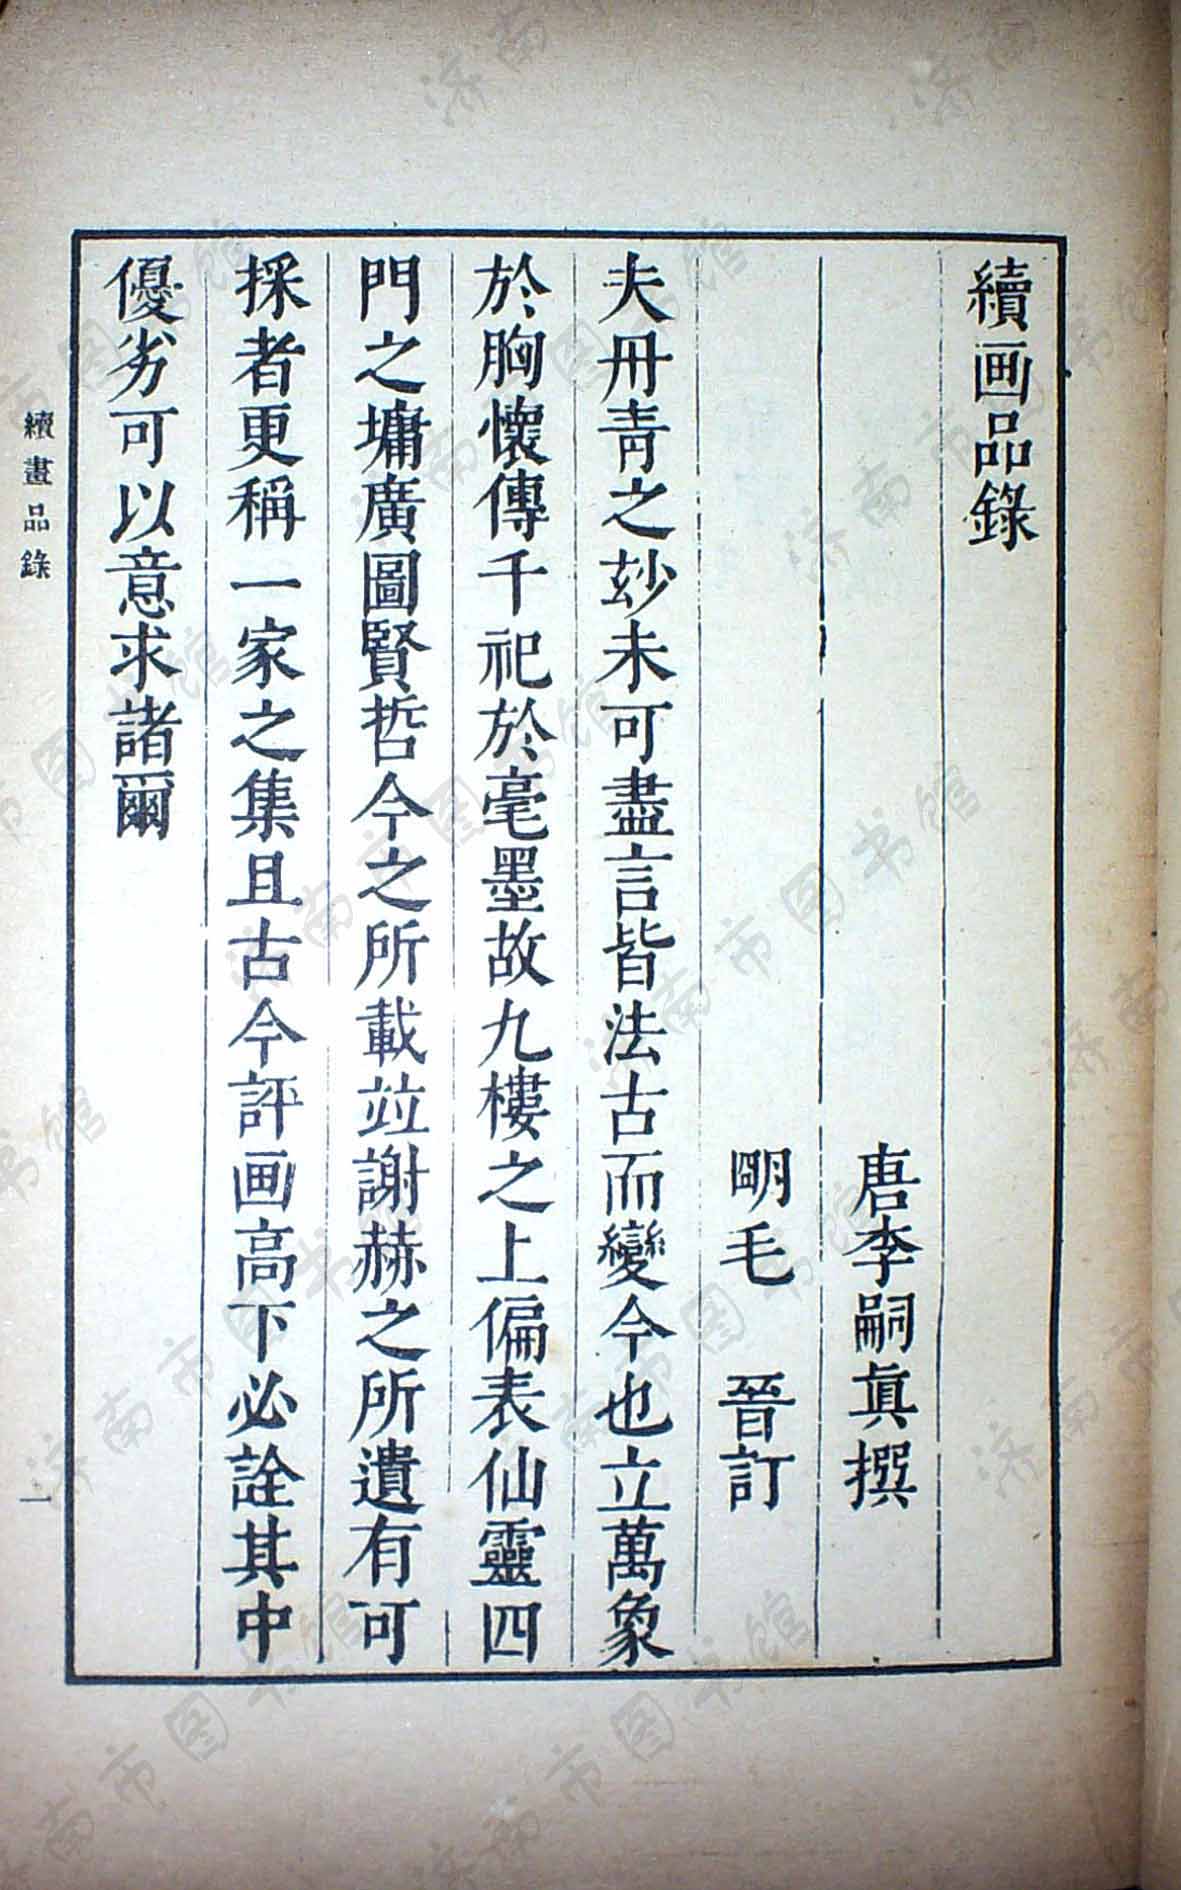 續画品錄
唐李嗣眞撰
明毛　晉訂
夫丹青之玅未可盡言皆法古而變今也立萬象
於胸懷傳千祀於毫墨故九樓之上偏表仙靈四
門之墉廣圖賢哲今之所載竝謝赫之所遺有可
採者更稱一家之集且古今評画高下必詮其中
優劣可以意求諸爾
續畫品錄
一
济南市图书馆